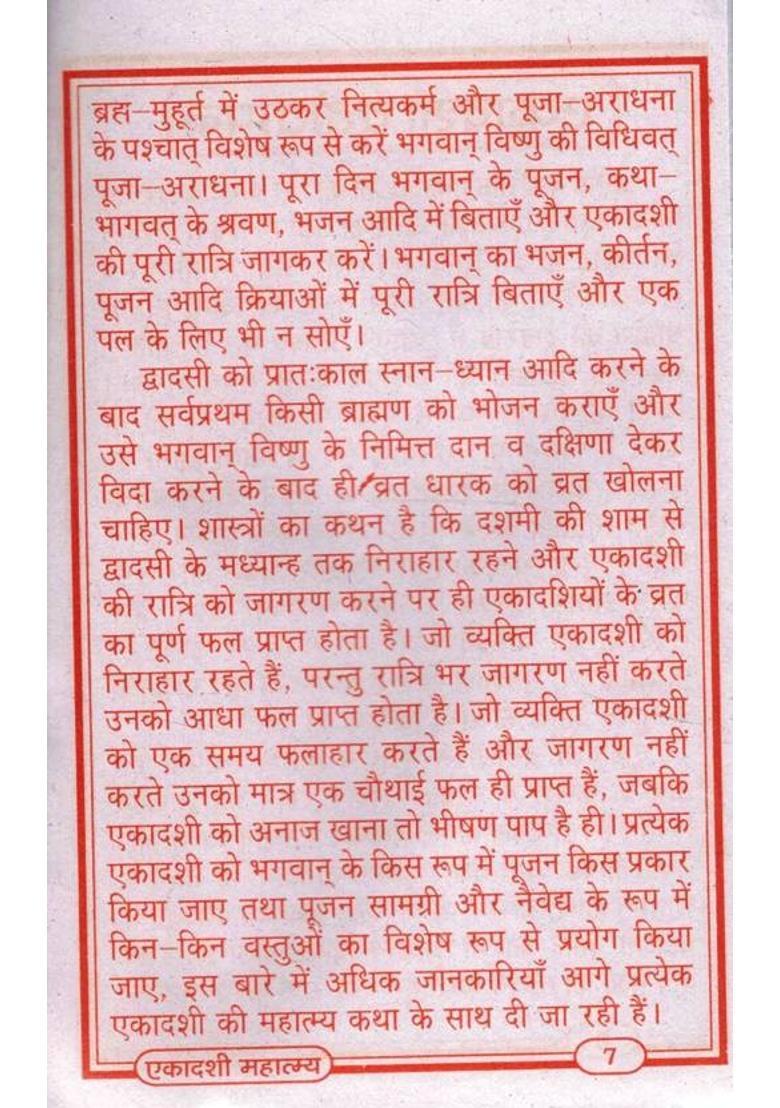 ब्रह्म–मुहूर्त में उठकर नित्यकर्म और पूजा–अराधना
के पश्चात् विशेष रूप से करें भगवान् विष्णु की विधिवत्
पूजा–अराधना। पूरा दिन भगवान् के पूजन, कथा–
भागवत् के श्रवण, भजन आदि में बिताएँ और एकादशी
की पूरी रात्रि जागकर करें। भगवान् का भजन, कीर्तन,
पूजन आदि क्रियाओं में पूरी रात्रि बिताएँ और एक
पल के लिए भी न सोएँ।
द्वादसी को प्रातःकाल स्नान–ध्यान आदि करने के
बाद सर्वप्रथम किसी ब्राह्मण को भोजन कराएँ और
उसे भगवान् विष्णु के निमित्त दान व दक्षिणा देकर
विदा करने के बाद ही व्रत धारक को व्रत खोलना
चाहिए। शास्त्रों का कथन है कि दशमी की शाम से
द्वादसी के मध्यान्ह तक निराहार रहने और एकादशी
की रात्रि को जागरण करने पर ही एकादशियों के व्रत
का पूर्ण फल प्राप्त होता है। जो व्यक्ति एकादशी को
निराहार रहते हैं, परन्तु रात्रि भर जागरण नहीं करते
उनको आधा फल प्राप्त होता है। जो व्यक्ति एकादशी
को एक समय फलाहार करते हैं और जागरण नहीं
करते उनको मात्र एक चौथाई फल ही प्राप्त हैं, जबकि
एकादशी को अनाज खाना तो भीषण पाप है ही। प्रत्येक
एकादशी को भगवान् के किस रूप में पूजन किस प्रकार
किया जाए तथा पूजन सामग्री और नैवेद्य के रूप में
किन–किन वस्तुओं का विशेष रूप से प्रयोग किया
जाए, इस बारे में अधिक जानकारियाँ आगे प्रत्येक
एकादशी की महात्म्य कथा के साथ दी जा रही हैं।
एकादशी महात्म्य
7